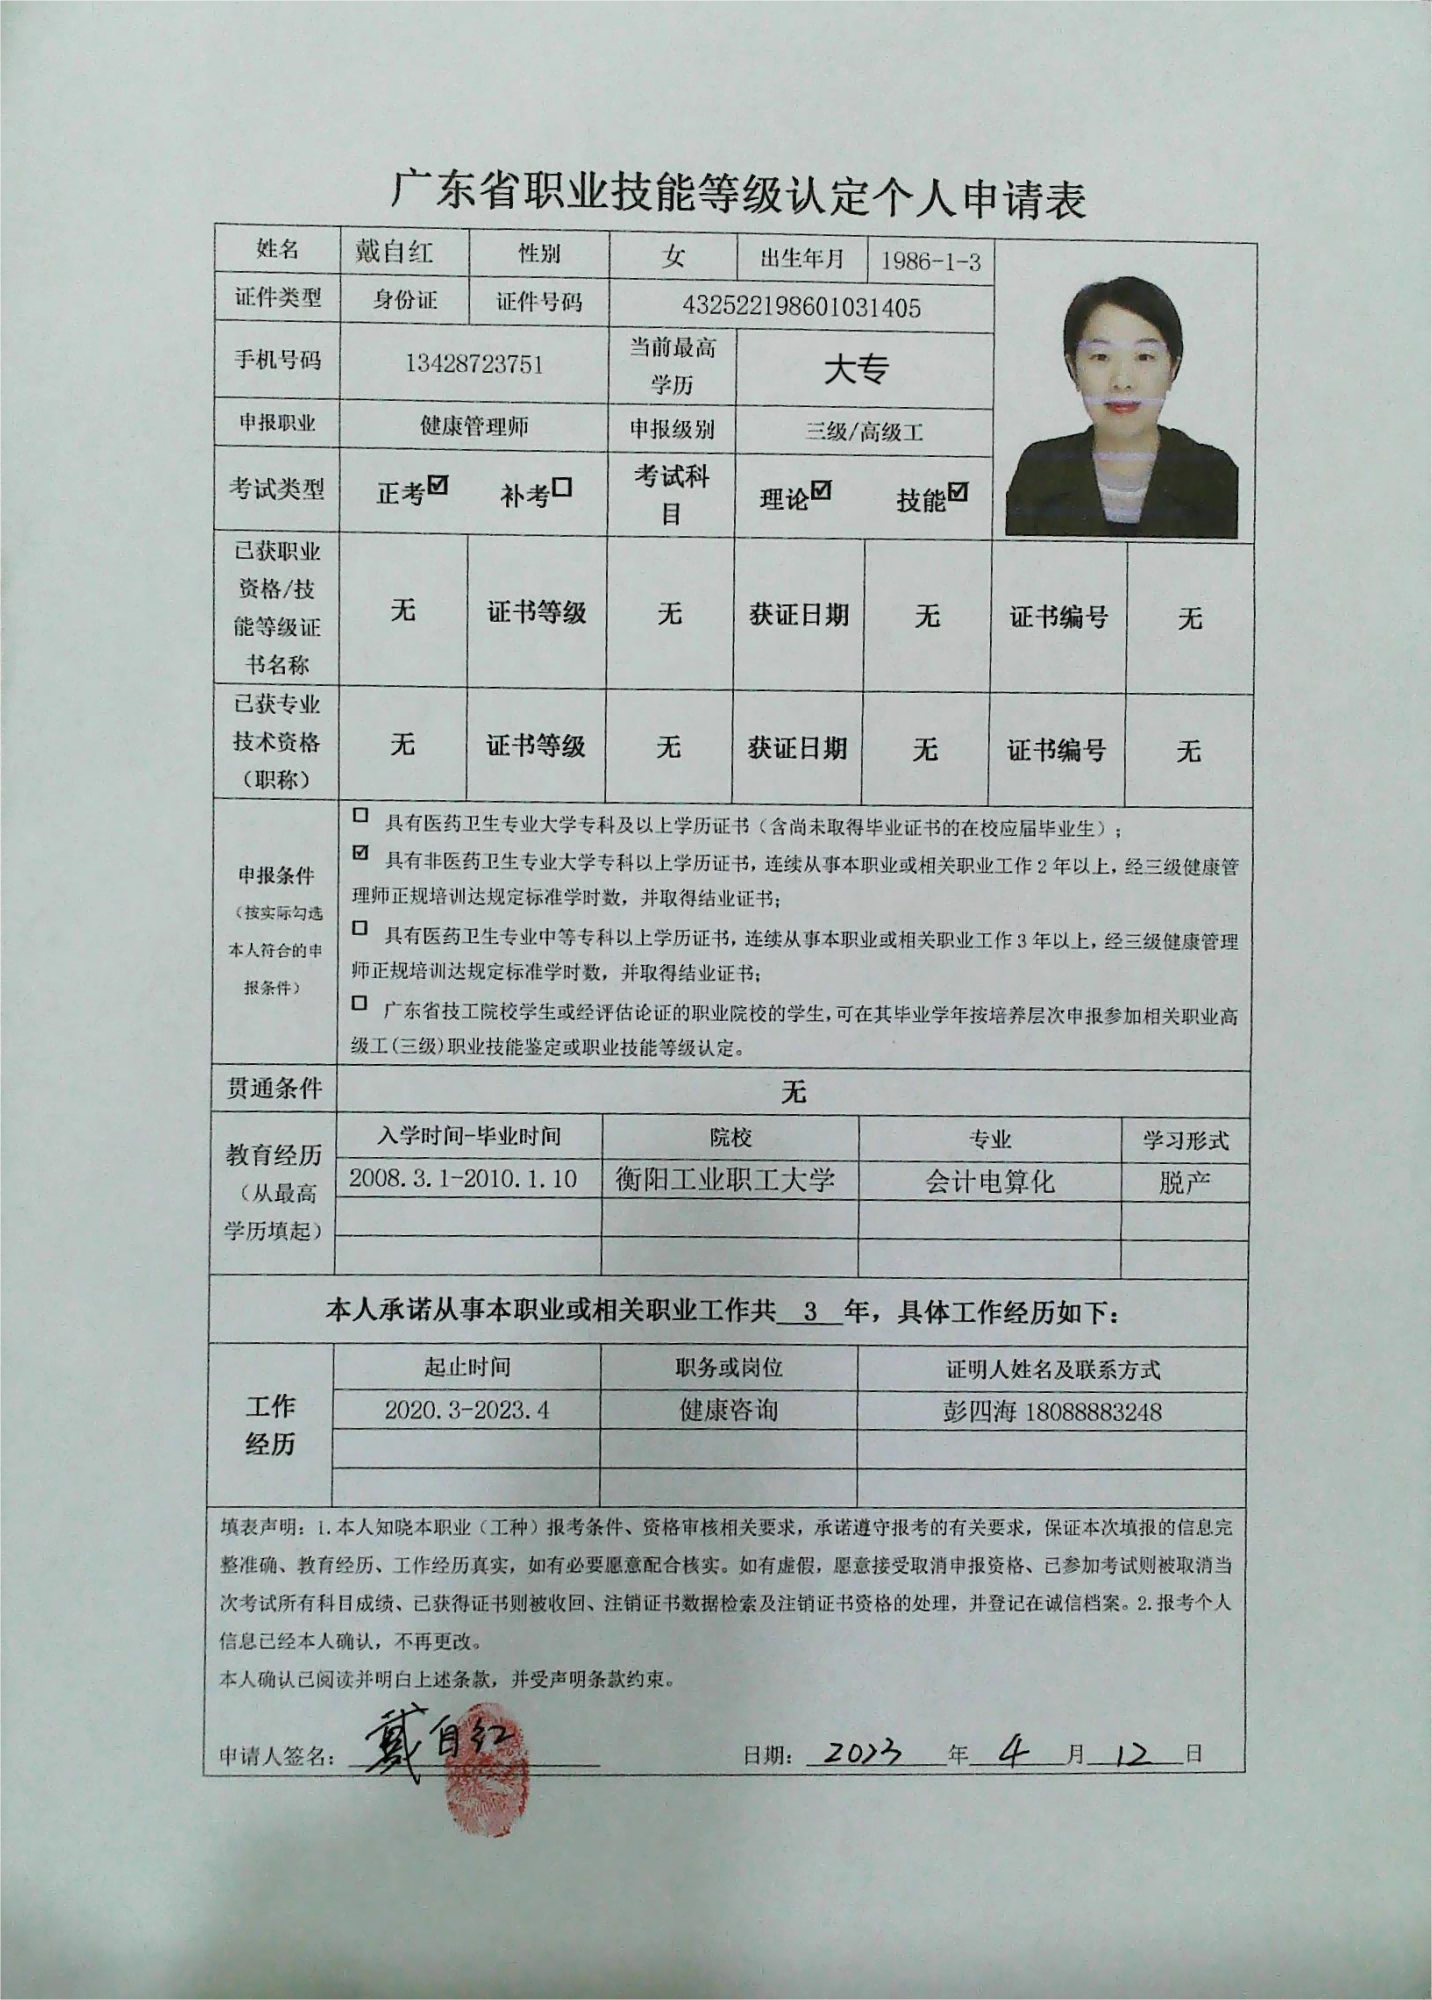 广东省职业技能等级认定个人申请表
姓名 戴自红 性别 女 出生年月 1986-1-3
证件类型 身份证 证件号码 432522198601031405
手机号码 13428723751 当前最高学历 大专
申报职业 健康管理师 申报级别 三级/高级工
考试类型 正考☑ 补考☐ 考试科目 理论☑ 技能☑
已获职业资格/技能等级证书名称 无 证书等级 无 获证日期 无 证书编号 无
已获专业技术资格（职称） 无 证书等级 无 获证日期 无 证书编号 无
申报条件
（按实际勾选
本人符合的申
报条件）
☐ 具有医药卫生专业大学专科及以上学历证书（含尚未取得毕业证书的在校应届毕业生）；
☑ 具有非医药卫生专业大学专科以上学历证书，连续从事本职业或相关职业工作2年以上，经三级健康管
理师正规培训达规定标准学时数，并取得结业证书；
☐ 具有医药卫生专业中等专科以上学历证书，连续从事本职业或相关职业工作3年以上，经三级健康管理
师正规培训达规定标准学时数，并取得结业证书；
☐ 广东省技工院校学生或经评估论证的职业院校的学生，可在其毕业学年按培养层次申报参加相关职业高
级工(三级)职业技能鉴定或职业技能等级认定。
贯通条件 无
教育经历
（从最高
学历填起）
入学时间-毕业时间 院校 专业 学习形式
2008.3.1-2010.1.10 衡阳工业职工大学 会计电算化 脱产
本人承诺从事本职业或相关职业工作共 3 年，具体工作经历如下：
工作
经历
起止时间 职务或岗位 证明人姓名及联系方式
2020.3-2023.4 健康咨询 彭四海 18088883248
填表声明：1.本人知晓本职业（工种）报考条件、资格审核相关要求，承诺遵守报考的有关要求，保证本次填报的信息完
整准确、教育经历、工作经历真实，如有必要愿意配合核实。如有虚假，愿意接受取消申报资格、已参加考试则被取消当
次考试所有科目成绩、已获得证书则被收回、注销证书数据检索及注销证书资格的处理，并登记在诚信档案。2.报考个人
信息已经本人确认，不再更改。
本人确认已阅读并明白上述条款，并受声明条款约束。
申请人签名：戴自红 日期：2023 年 4 月 12 日